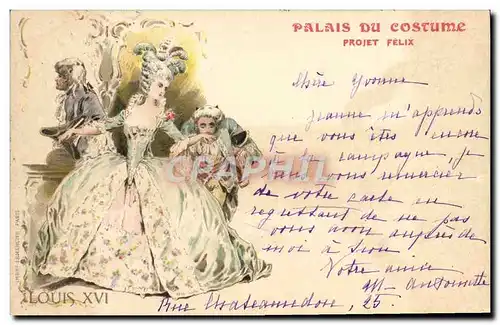 PALAIS DU COSTUME
PROJET FÉLIX
Chère Yvonne
Jeanne m'apprends
que vous êtes encore
campagne, je
vous remercier
de votre carte en
regrettant de ne pas
vous avoir auprès de
moi à
Votre amie
M. Antoinette
Rue 25.
LOUIS XVI
CPAPHIL